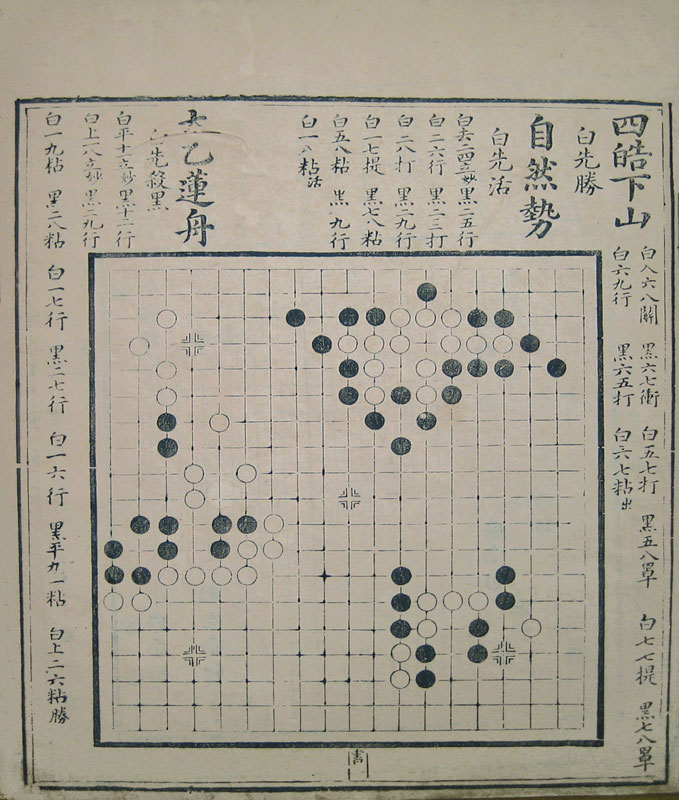 四皓下山
白先勝
白入六八關 黑六七衝 白五七打 黑五八罩 白七七提 黑七八罩
白六九行 黑六五打 白六七粘出
自然勢
白先活
白去二四立妙 黑二五行
白二六行 黑二三打
白二八打 黑二九行
白一七提 黑七八粘
白五八粘 黑 九行
白一八粘活
太乙蓮舟
白先殺黑
白平十立妙 黑十二行
白上一八立妙 黑二九行
白一九粘 黑二八粘 白一七行 黑二七行 白一六行 黑平九一粘 白上二六粘勝